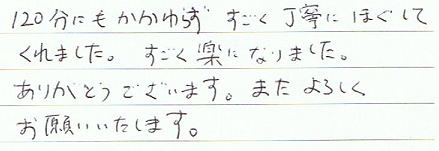 120分にもかかわらず すごく丁寧にほぐして
くれました。 すごく楽になりました。
ありがとうございます。またよろしく
お願いいたします。